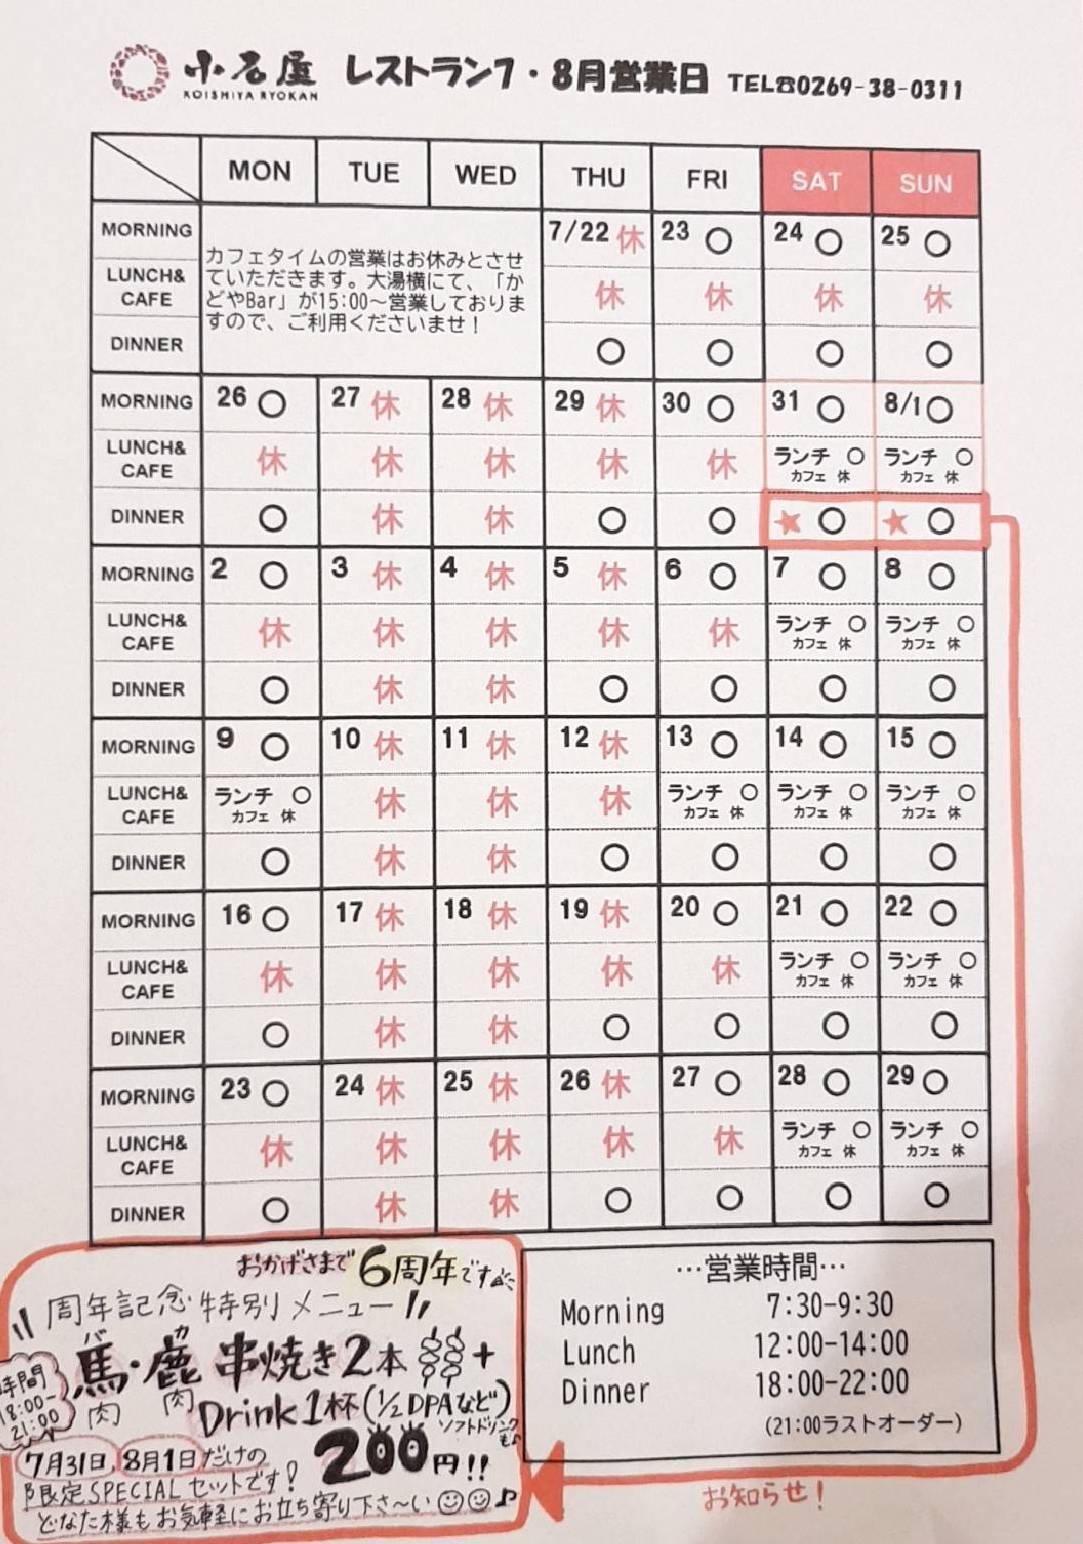 小石屋 レストラン7・8月営業日 TEL☎0269-38-0311
KOISHIYA RYOKAN
MON TUE WED THU FRI SAT SUN
MORNING 7/22 休 23 ○ 24 ○ 25 ○
カフェタイムの営業はお休みとさせ
ていただきます。大湯横にて、「か
どやBar」が15:00～営業しておりま
すので、ご利用くださいませ！
LUNCH& CAFE 休 休 休 休
DINNER ○ ○ ○ ○
MORNING 26 ○ 27 休 28 休 29 休 30 ○ 31 ○ 8/1 ○
LUNCH& CAFE 休 休 休 休 休 ランチ ○ カフェ 休 ランチ ○ カフェ 休
DINNER ○ 休 休 ○ ○ ★ ○ ★ ○
MORNING 2 ○ 3 休 4 休 5 休 6 ○ 7 ○ 8 ○
LUNCH& CAFE 休 休 休 休 休 ランチ ○ カフェ 休 ランチ ○ カフェ 休
DINNER ○ 休 休 ○ ○ ○ ○
MORNING 9 ○ 10 休 11 休 12 休 13 ○ 14 ○ 15 ○
LUNCH& CAFE ランチ ○ カフェ 休 休 休 休 ランチ ○ カフェ 休 ランチ ○ カフェ 休 ランチ ○ カフェ 休
DINNER ○ 休 休 ○ ○ ○ ○
MORNING 16 ○ 17 休 18 休 19 休 20 ○ 21 ○ 22 ○
LUNCH& CAFE 休 休 休 休 休 ランチ ○ カフェ 休 ランチ ○ カフェ 休
DINNER ○ 休 休 ○ ○ ○ ○
MORNING 23 ○ 24 休 25 休 26 休 27 ○ 28 ○ 29 ○
LUNCH& CAFE 休 休 休 休 休 ランチ ○ カフェ 休 ランチ ○ カフェ 休
DINNER ○ 休 休 ○ ○ ○ ○
おかげさまで6周年です
周年記念特別メニュー!
馬肉・鹿肉 串焼き2本 +
バ カ
時間
18:00-
21:00
Drink 1杯(1/2 DPAなど)
ソフトドリンクも♪
7月31日, 8月1日だけの 200円!!
限定SPECIALセットです!
どなた様もお気軽にお立ち寄り下さ〜い♪
…営業時間…
Morning 7:30-9:30
Lunch 12:00-14:00
Dinner 18:00-22:00
(21:00ラストオーダー)
お知らせ!